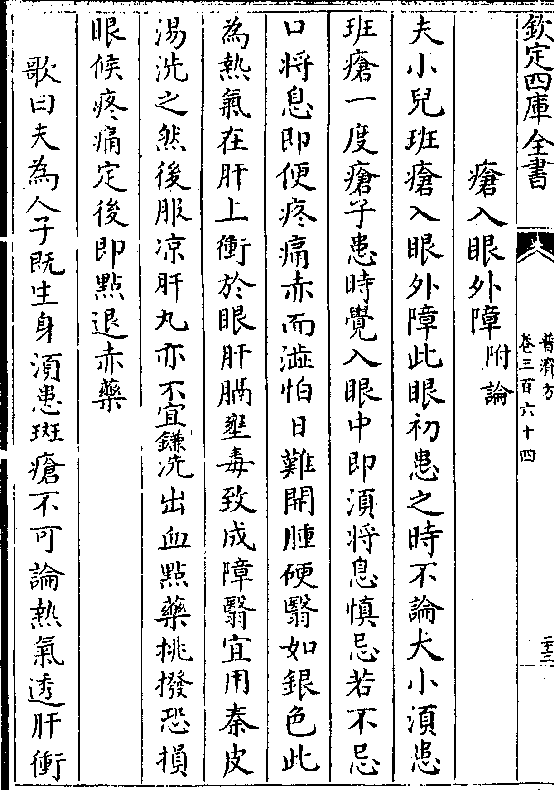 欽定四庫全書
普濟方
卷三百六十四
二十三
瘡入眼外障附論
夫小兒班瘡入眼外障此眼初患之時不論大小須患
班瘡一度瘡子患時覺入眼中即須將息慎忌若不忌
口將息即便疼痛赤而澁怕日難開腫硬翳如銀色此
為熱氣在肝上衝於眼肝膈壅毒致成障翳宜用秦皮
湯洗之然後服凉肝丸亦不宜鎌洗出血點藥挑撥恐損
眼候疼痛定後即點退赤藥
歌曰夫為人子既生身須患斑瘡不可論熱氣透肝衝